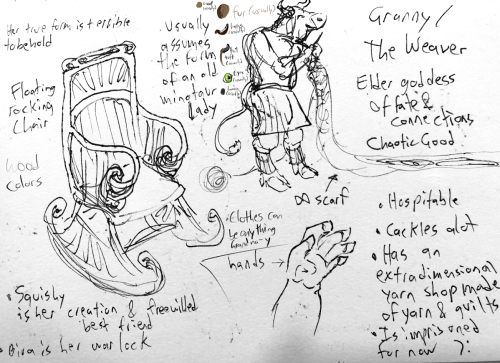 Her true form is terrible
to behold
Floating
rocking
Chair
wood
colors
Usually
assumes
the form
of an old
minotaur
lady
Fur (usually)
Granny/
The Weaver
Elder goddess
of fate &
connections
Chaotic Good
∞ scarf
Clothes can
be anything
granny-y
hands →
• Hospitable
• Cackles alot
• Has an
extradimensional
yarn shop made
of yarn & quilts
• Is imprisoned
for now ?:
• Squishy
is her creation & freewilled
best friend
is her warlock